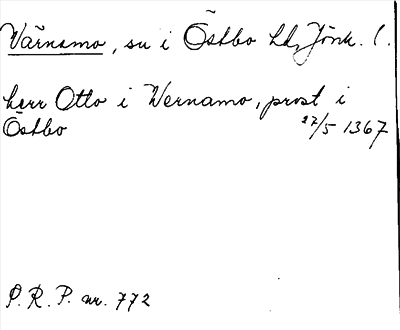 Värnamo, sn i Östbo hd, Jönk. l.
herr Otto i Wernamo, prost i
Östbo 27/5 1367
P. R. P. nr. 772